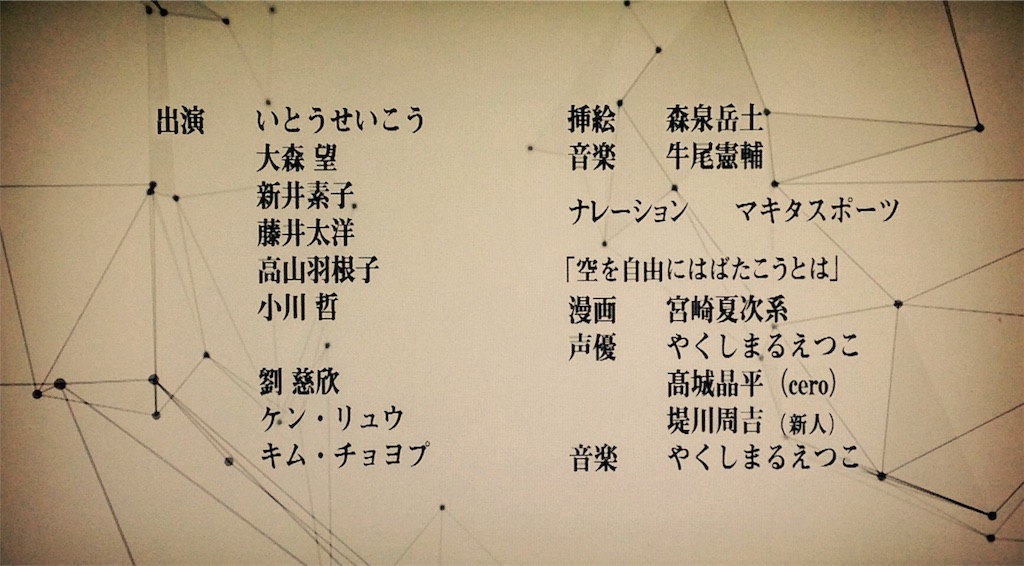 出演 いとうせいこう
大森 望
新井素子
藤井太洋
高山羽根子
小川 哲
劉 慈欣
ケン・リュウ
キム・チョヨプ
挿絵 森泉岳士
音楽 牛尾憲輔
ナレーション マキタスポーツ
「空を自由にはばたこうとは」
漫画 宮崎夏次系
声優 やくしまるえつこ
髙城晶平（cero）
堤川周吉（新人）
音楽 やくしまるえつこ